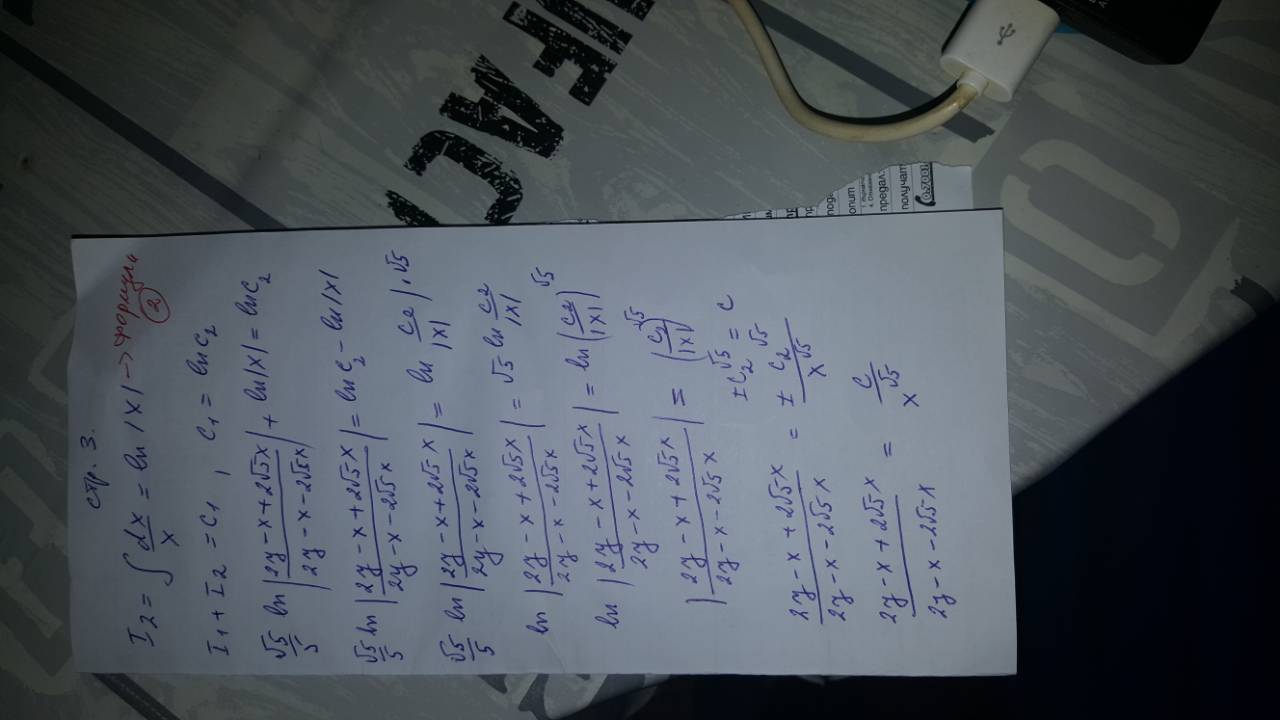 стр. 3.
I₂ = ∫ dx/x = ln |x| → формула
②
I₁ + I₂ = C₁ , C₁ = ln C₂
√5/5 ln |(2y − x + 2√5x)/(2y − x − 2√5x)| + ln|x| = ln C₂
√5/5 ln |(2y − x + 2√5x)/(2y − x − 2√5x)| = ln C₂ − ln|x|
√5/5 ln |(2y − x + 2√5x)/(2y − x − 2√5x)| = ln C₂/|x| | · √5
ln |(2y − x + 2√5x)/(2y − x − 2√5x)| = √5 ln C₂/|x|
ln |(2y − x + 2√5x)/(2y − x − 2√5x)| = ln (C₂/|x|)^√5
|(2y − x + 2√5x)/(2y − x − 2√5x)| = (C₂/|x|)^√5
±C₂^√5 = C
(2y − x + 2√5x)/(2y − x − 2√5x) = ± C₂^√5/x^√5
(2y − x + 2√5x)/(2y − x − 2√5x) = C/x^√5
UFACT
опит
предал.
получат
0.7001